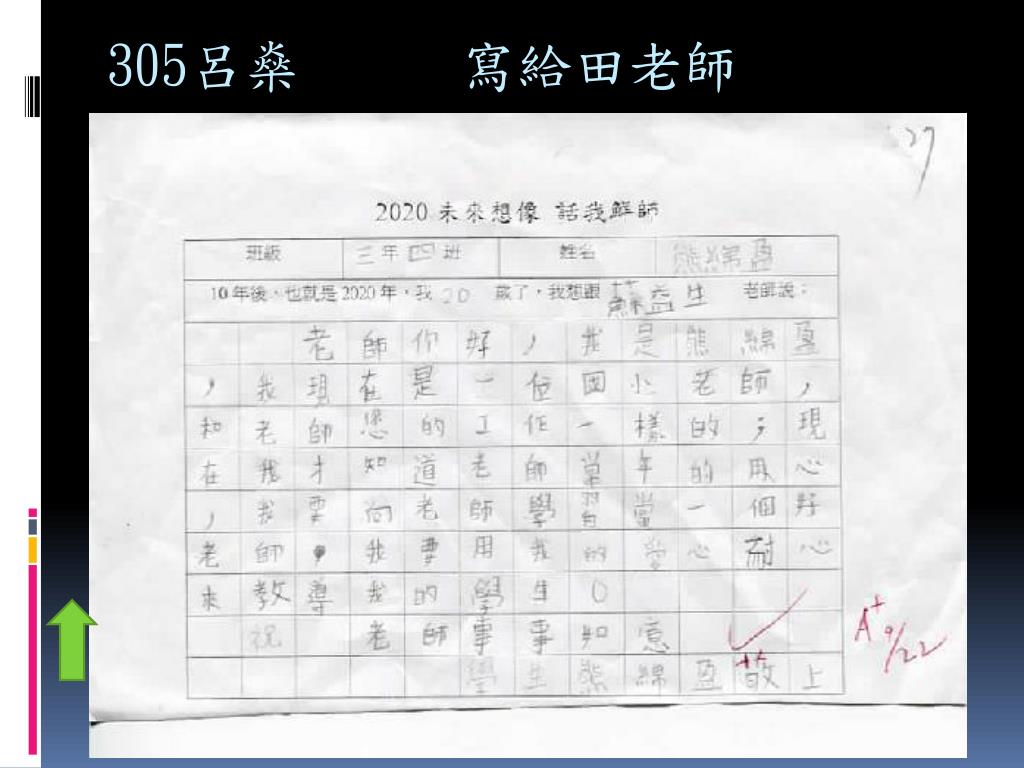 305呂燊 寫給田老師
27
2020 未來想像 話我鮮師
班級 三年四班 姓名 熊綿盈
10年後，也就是2020年，我20歲了，我想跟蘇益生老師說：
老師你好，我是熊綿盈
，我現在是一位國小老師，
和老師您的工作一樣的；現
在我才知道老師當年的用心
，我要向老師學習當一個好
老師，我要用我的愛心耐心
來教導我的學生。
祝 老師事事如意
學生熊綿盈敬上
A+ 9/22